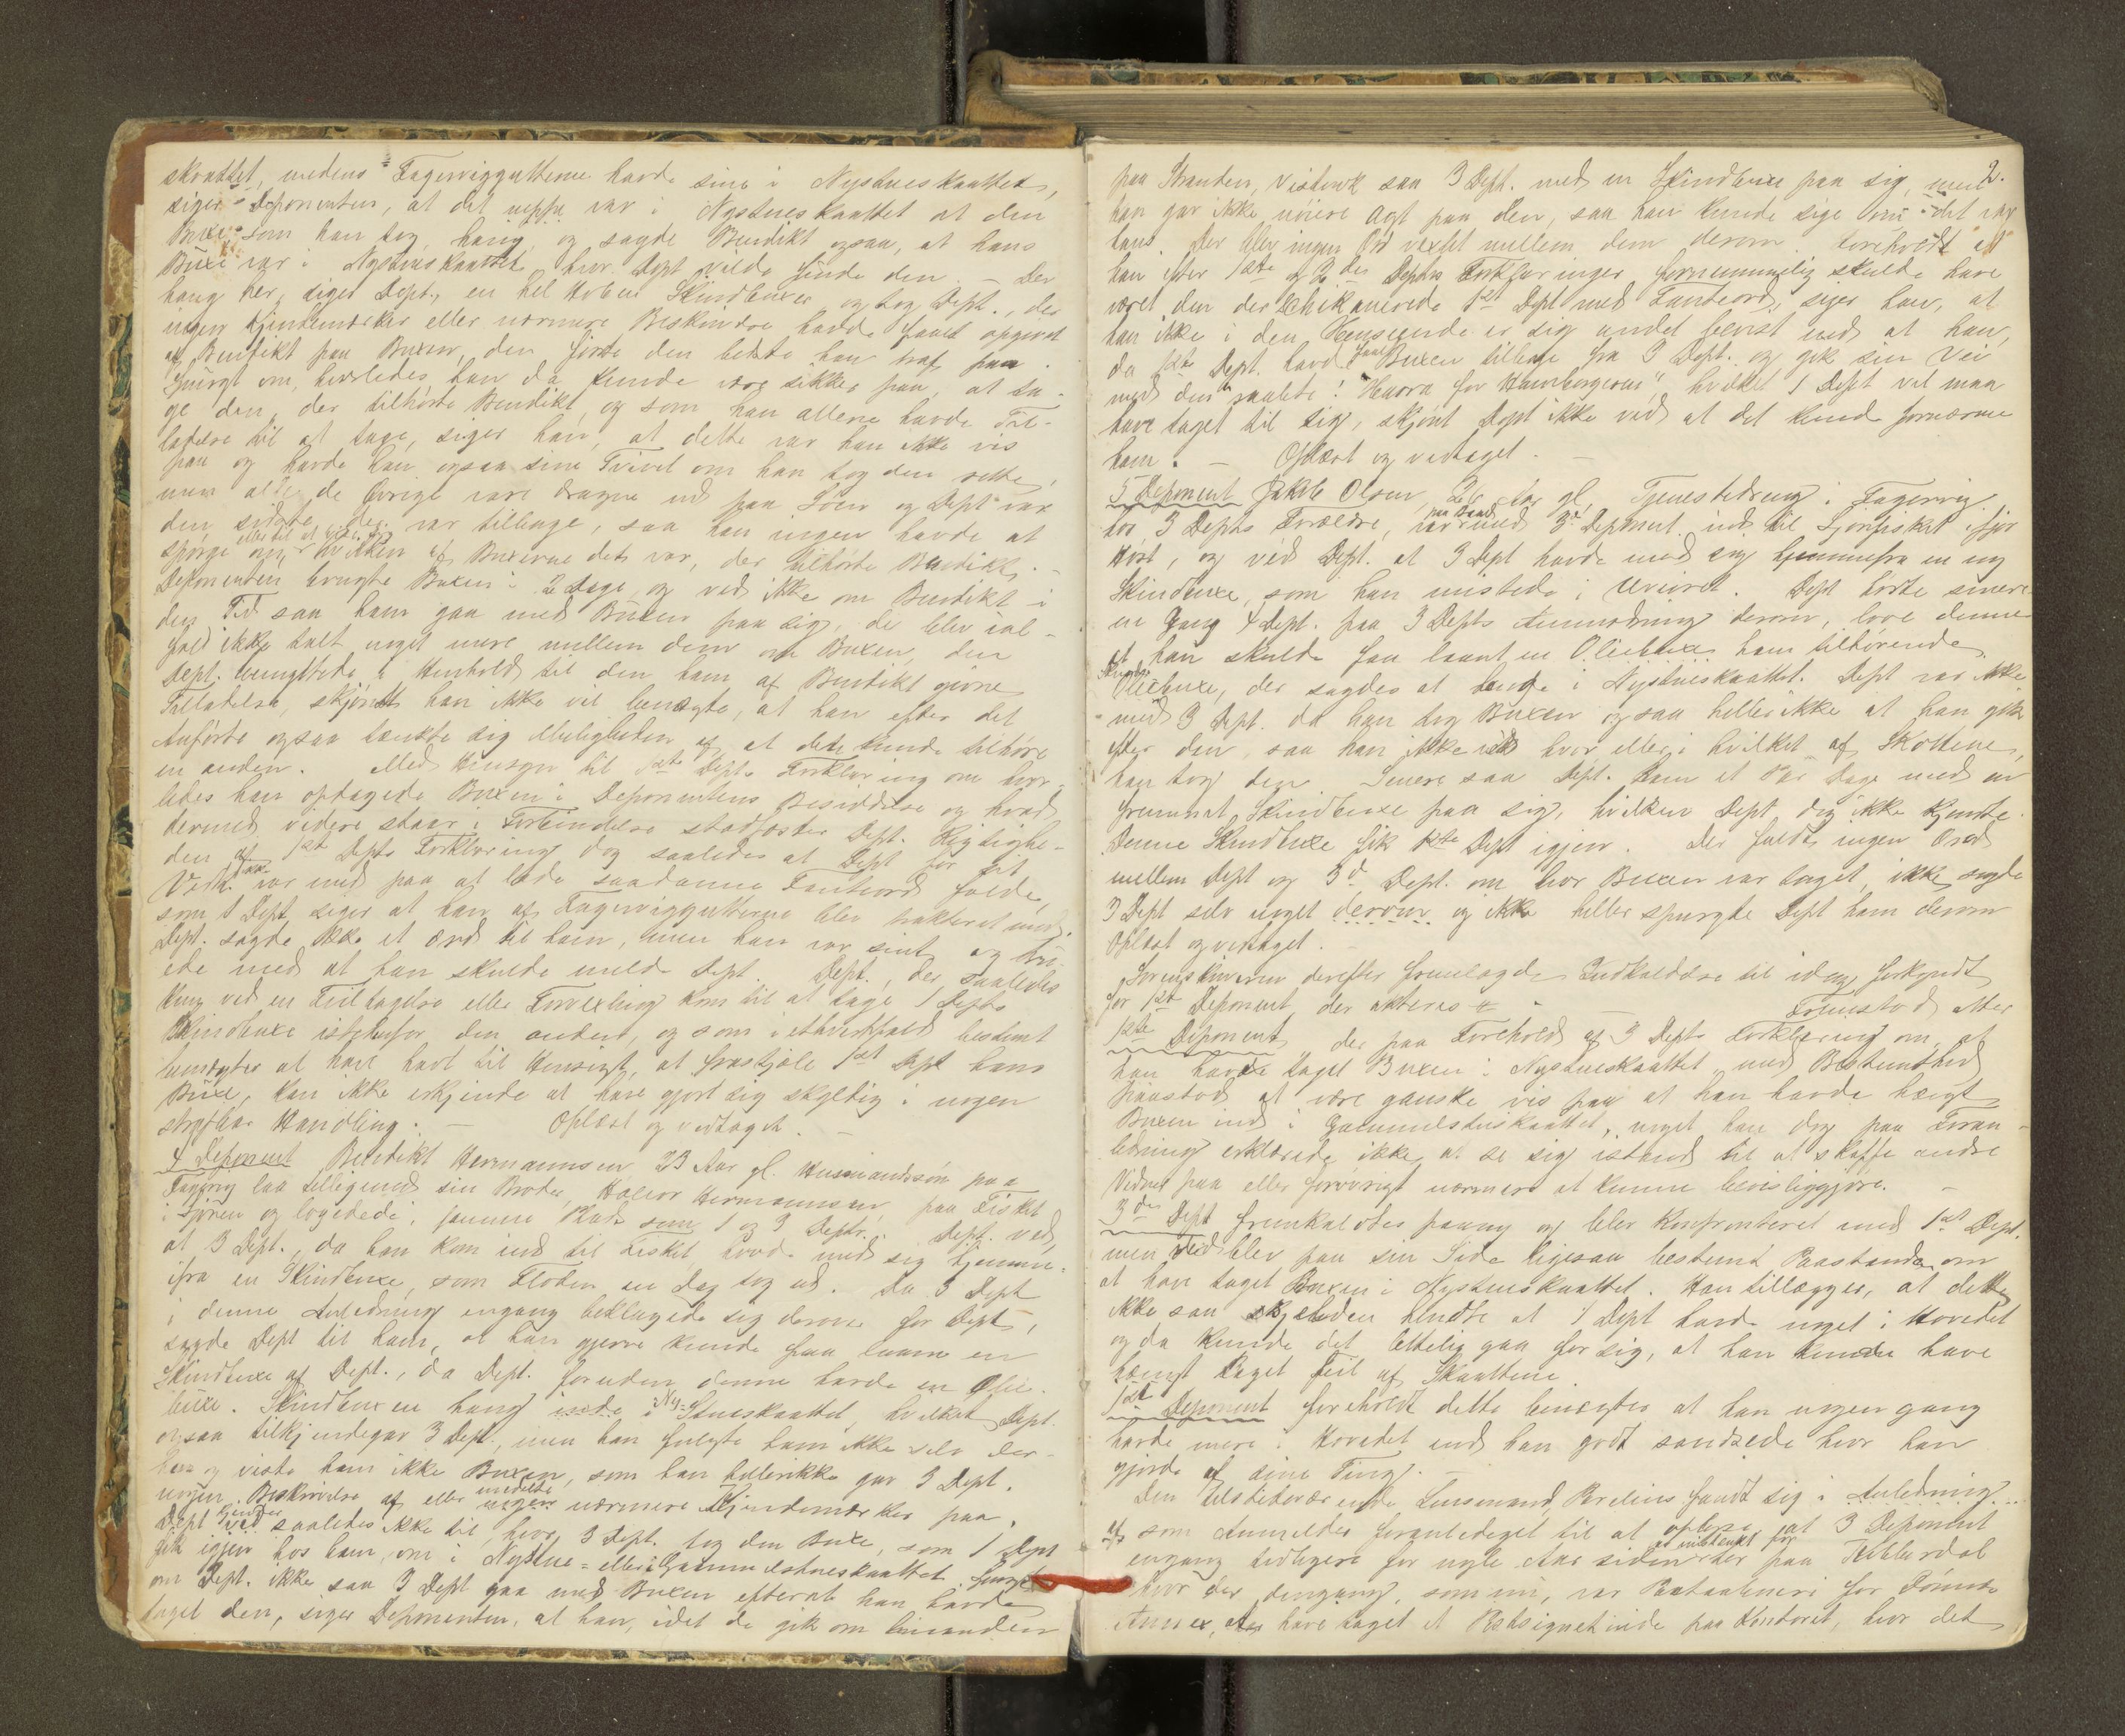 skvattet, medens Fagervigguttene havde sine i Nystueskaattet,
siger Deponenten, at det neppe var i Nystueskaattet at den
Buxe som han tog, hang, og sagde Bendikt ogsaa, at hans
Buxe var i Nystueskaattet, hvor Dept vilde finde den – Der
hang her, siger Dept., en hel Hoben Skindbuxer og tog Dept., der
ingen Kjendemærker eller nærmere Beskrivelse havde faaet opgivet
af Bendikt paa Buxen, den første den bedste han traf paa.
Spurgt om, hvorledes han da kunde være sikker paa, at ta-
ge den, der tilhørte Bendikt, og som han allene havde Til-
ladelse til at tage, siger han, at dette var han ikke vis
paa og havde han ogsaa sine Tvivl om han tog den rette,
men alle de Øvrige vare dragne ud paa Søen og Dept var
den sidste, der var tilbage, saa han ingen havde at
spørge om, hvilken af Buxerne det var, der tilhørte Bendikt. –
Deponenten brugte Buxen i 2 Dage, og ved ikke om Bendikt i
den Tid saa ham gaa med Buxen paa sig, der blev ial-
fald ikke talt noget mere mellem dem om Buxen, den
Dept. benyttede i Henhold til den ham af Bendikt givne
Tilladelse, skjøndt han ikke vil benægte, at han efter det
Anførte ogsaa tænkte sig Muligheden af at den kunde tilhøre
en anden. Med Hensyn til 1ste Depts Forklaring om hvor-
ledes han opdagede Buxen i Deponentens Besiddelse og hvad
dermed videre staar i Forbindelse stadfæster Dept. Rigtighe-
den af 1ste Depts Forklaring dog saaledes at Dept for sit
Vedk. var med paa at lade saadanne Fanteord falde,
som 1 Dept siger at han af Fagervigguttene blev trakteret med.
Dept. sagde ikke et Ord til ham, men han var sint og tru-
ede med at han skulde melde Dept. Dept., der saaledes
kun ved en Feiltagelse eller Forvexling kom til at tage 1 Depts
Skindbuxe istedenfor den anden, og som i ethvertfald bestemt
benægter at have havt til Hensigt, at frastjæle 1ste Dept hans
Buxe, kan ikke erkjende at have gjort sig skyldig i nogen
strafbar Handling. – Oplæst og vedtaget. –
4 Deponent Bendikt Hermannsen 23 Aar gl. Husmandssøn paa
Fagervig laa tilligemed sin Broder, Halvor Hermannsen, paa Fisket
i Sjøen og logerede i samme Stade som 1 og 3 Deptr. Dept. ved,
at 3 Dept., da han kom ind til Fisket, havde med sig hjemme-
ifra en Skindbuxe, som Floden en Dag tog ud. Da 3 Dept
i denne Anledning engang beklagede sig derover for Dept,
sagde Dept til ham, at han gjerne kunde faa laane en
Skindbuxe af Dept., da Dept. foruden denne havde en Olie-
buxe. Skindbuxen hang inde i Ny-Stueskaattet, hvilket Dept.
ogsaa tilkjendegav 3 Dept., men han fulgte ham ikke selv der-
hen og viste ham ikke Buxen, som han hellerikke gav 3 Dept.
nogen Beskrivelse af eller meddelte nogen nærmere Kjendemærker paa.
Dept kjender saaledes ikke til, hvor 3 Dept. tog den Buxe, som 1 Dept
gik igjen hos ham, om i Nystue- eller i Gammelstueskaattet. Spurgt
om Dept. ikke saa 3 Dept gaa med Buxen efterat han havde
taget den, siger Deponenten, at han, idet de gik om hinanden
2.
paa Stranden, vistnok saa 3 Dept. med en Skindbuxe paa sig, men
han gav ikke nøiere Agt paa den, saa han kunde sige om det var
hans. Der blev ingen Ord vexlet mellem dem derom. Foreholdt at
han efter 1ste og 3die Depts Forklaringer fornemmelig skulde have
været den der chikanerede 1ste Dept med Fanteord, siger han, at
han ikke i den Henseende er sig andet bevist end at han,
da 1ste Dept. havde faaet Buxen tilbage fra 3 Dept. og gik sin Vei
med den raabte: "Hurra for Hamborgeren", hvilket 1 Dept vel maa
have taget til sig, skjønt Dept ikke ved at det kunde fornærme
ham. – Oplæst og vedtaget. –
5 Deponent Jakob Olsen, 26 Aar gl. Tjenestedreng i Fagervig
hos 3 Depts Forældre, var med 3die Deponent ind til Sjøfisket ifjor
Høst, og ved Dept. at 3 Dept havde med sig hjemmefra en ny
Skindbuxe, som han mistede i Uveiret. Dept hørte senere
en Gang 4 Dept. paa 3 Depts Anmodning derom, love denne
at han skulde faa laant en Oliebuxe ham tilhørende
Oliebuxe, der sagdes at hænge i Nystueskaattet. Dept var ikke
med 3 Dept. da han tog Buxen og saa heller ikke at han gik
efter den, saa han ikke ved hvor eller i hvilket af Skottene,
han tog den. Senere saa Dept. ham et Par Dage med en
fremmet Skindbuxe paa sig, hvilken Dept dog ikke kjendte.
Denne Skindbuxe fik 1ste Dept igjen. Der faldt ingen Ord
mellem Dept og 3d Dept. om hvor Buxen var taget, ikke sagde
3 Dept selv noget derom og ikke heller spurgte Dept ham derom
Oplæst og vedtaget. –
Sorenskriveren derefter fremlagde Indkaldelse til idag forkyndt
for 1st Deponent der akteres – Fremstod atter
1ste Deponent der paa Forehold af 3 Depts Forklaring om, at
han havde taget Buxen i Nystueskaattet, med Bestemthed
paastod at være ganske vis paa at han havde hængt
Buxen ind i Gammelstueskaattet, noget han dog paa Foran-
ledning erklærede ikke at se sig istand til at skaffe andre
Vidner paa eller forøvrigt nærmere at kunne bevisliggjøre. –
3die Dept fremkaldtes paany og blev konfronteret med 1ste Dept.
men vedblev paa sin Side ligesaa bestemt Paastanden om
at have taget Buxen i Nystueskaattet. Han tillægger, at det
ikke saa sjelden hendte at 1 Dept havde noget i Hovedet
og da kunde det lettelig gaa for sig, at han kunde have
hængt taget feil af Skaattene
1ste Deponent foreholdt dette benægtes at han nogen gang
havde mere i Hovedet end han godt sandsede hvor han
gjorde af sine Ting. –
Den tilstedeværende Lensmand, Brelius fandt sig i Anledning
af som Anmelder foranlediget til at oplyse at 3 Deponent
engang tidligere for nogle Aar siden er mistænkt for paa
hvor der dengang, som nu, var for
Annex, at have taget et Postsignet inde paa Kontoret, hvor det